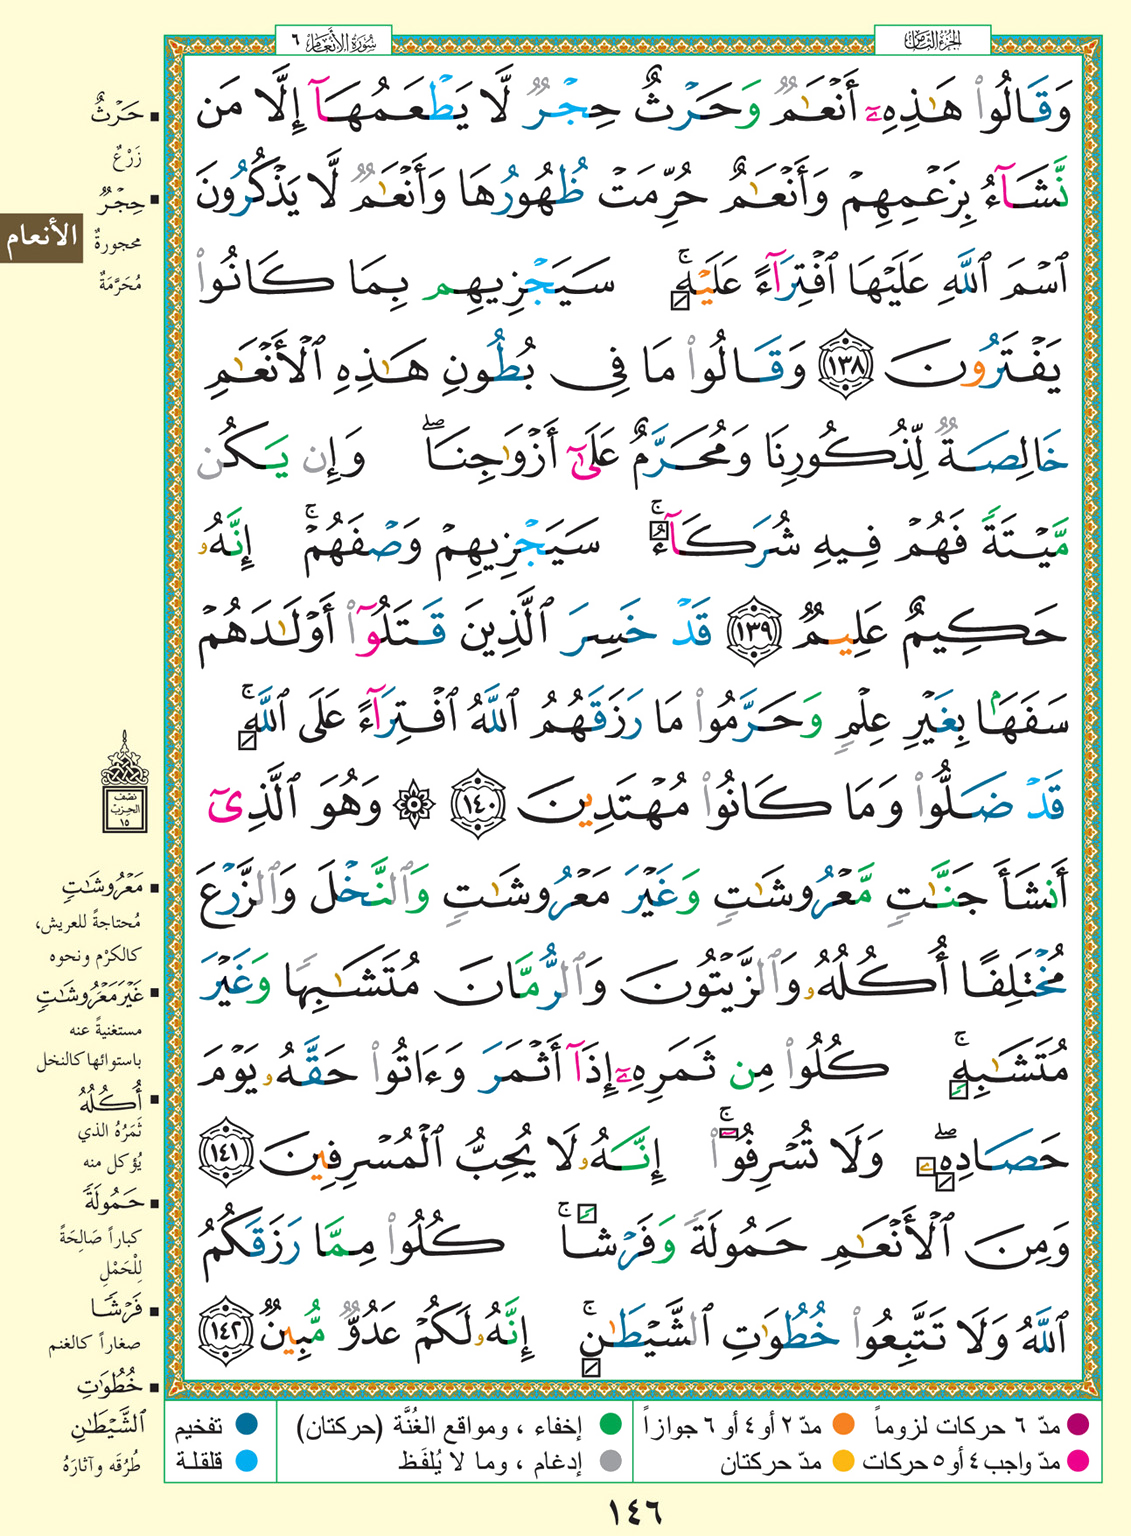 الجزء الثامن
سورة الأنعام ٦
وَقَالُوا۟ هَـٰذِهِۦٓ أَنْعَـٰمٌ وَحَرْثٌ حِجْرٌ لَّا يَطْعَمُهَآ إِلَّا مَن
نَّشَآءُ بِزَعْمِهِمْ وَأَنْعَـٰمٌ حُرِّمَتْ ظُهُورُهَا وَأَنْعَـٰمٌ لَّا يَذْكُرُونَ
ٱسْمَ ٱللَّهِ عَلَيْهَا ٱفْتِرَآءً عَلَيْهِ ۚ سَيَجْزِيهِم بِمَا كَانُوا۟
يَفْتَرُونَ ١٣٨ وَقَالُوا۟ مَا فِى بُطُونِ هَـٰذِهِ ٱلْأَنْعَـٰمِ
خَالِصَةٌ لِّذُكُورِنَا وَمُحَرَّمٌ عَلَىٰٓ أَزْوَٰجِنَا ۖ وَإِن يَكُن
مَّيْتَةً فَهُمْ فِيهِ شُرَكَآءُ ۚ سَيَجْزِيهِمْ وَصْفَهُمْ ۚ إِنَّهُۥ
حَكِيمٌ عَلِيمٌ ١٣٩ قَدْ خَسِرَ ٱلَّذِينَ قَتَلُوٓا۟ أَوْلَـٰدَهُمْ
سَفَهًۢا بِغَيْرِ عِلْمٍ وَحَرَّمُوا۟ مَا رَزَقَهُمُ ٱللَّهُ ٱفْتِرَآءً عَلَى ٱللَّهِ ۚ
قَدْ ضَلُّوا۟ وَمَا كَانُوا۟ مُهْتَدِينَ ١٤٠ ۞ وَهُوَ ٱلَّذِىٓ
أَنشَأَ جَنَّـٰتٍ مَّعْرُوشَـٰتٍ وَغَيْرَ مَعْرُوشَـٰتٍ وَٱلنَّخْلَ وَٱلزَّرْعَ
مُخْتَلِفًا أُكُلُهُۥ وَٱلزَّيْتُونَ وَٱلرُّمَّانَ مُتَشَـٰبِهًا وَغَيْرَ
مُتَشَـٰبِهٍ ۚ كُلُوا۟ مِن ثَمَرِهِۦٓ إِذَآ أَثْمَرَ وَءَاتُوا۟ حَقَّهُۥ يَوْمَ
حَصَادِهِۦ ۖ وَلَا تُسْرِفُوٓا۟ ۚ إِنَّهُۥ لَا يُحِبُّ ٱلْمُسْرِفِينَ ١٤١
وَمِنَ ٱلْأَنْعَـٰمِ حَمُولَةً وَفَرْشًا ۚ كُلُوا۟ مِمَّا رَزَقَكُمُ
ٱللَّهُ وَلَا تَتَّبِعُوا۟ خُطُوَٰتِ ٱلشَّيْطَـٰنِ ۚ إِنَّهُۥ لَكُمْ عَدُوٌّ مُّبِينٌ ١٤٢
حَرْثٌ
زَرْعٌ
حِجْرٌ
محجورةٌ
مُحَرَّمَةٌ
الأنعام
نصف
الحزب
١٥
مَعْرُوشَـٰتٍ
مُحتاجةً للعريش،
كالكرْم ونحوه
غَيْرَ مَعْرُوشَـٰتٍ
مستغنيةً عنه
باستوائها كالنخل
أُكُلُهُ
ثَمَرُهُ الذي
يُؤكل منه
حَمُولَةً
كباراً صَالِحَةً
لِلْحَمْلِ
فَرْشًا
صغاراً كالغنم
خُطُوَٰتِ
الشَّيْطَـٰنِ
طُرُقَه وآثارَهُ
مدّ ٦ حركات لزوماً
مدّ ٢ أو ٤ أو ٦ جوازاً
إخفاء ، ومواقع الغُنَّة (حركتان)
تفخيم
مدّ واجب ٤ أو ٥ حركات
مدّ حركتان
إدغام ، وما لا يُلفَظ
قلقلة
١٤٦